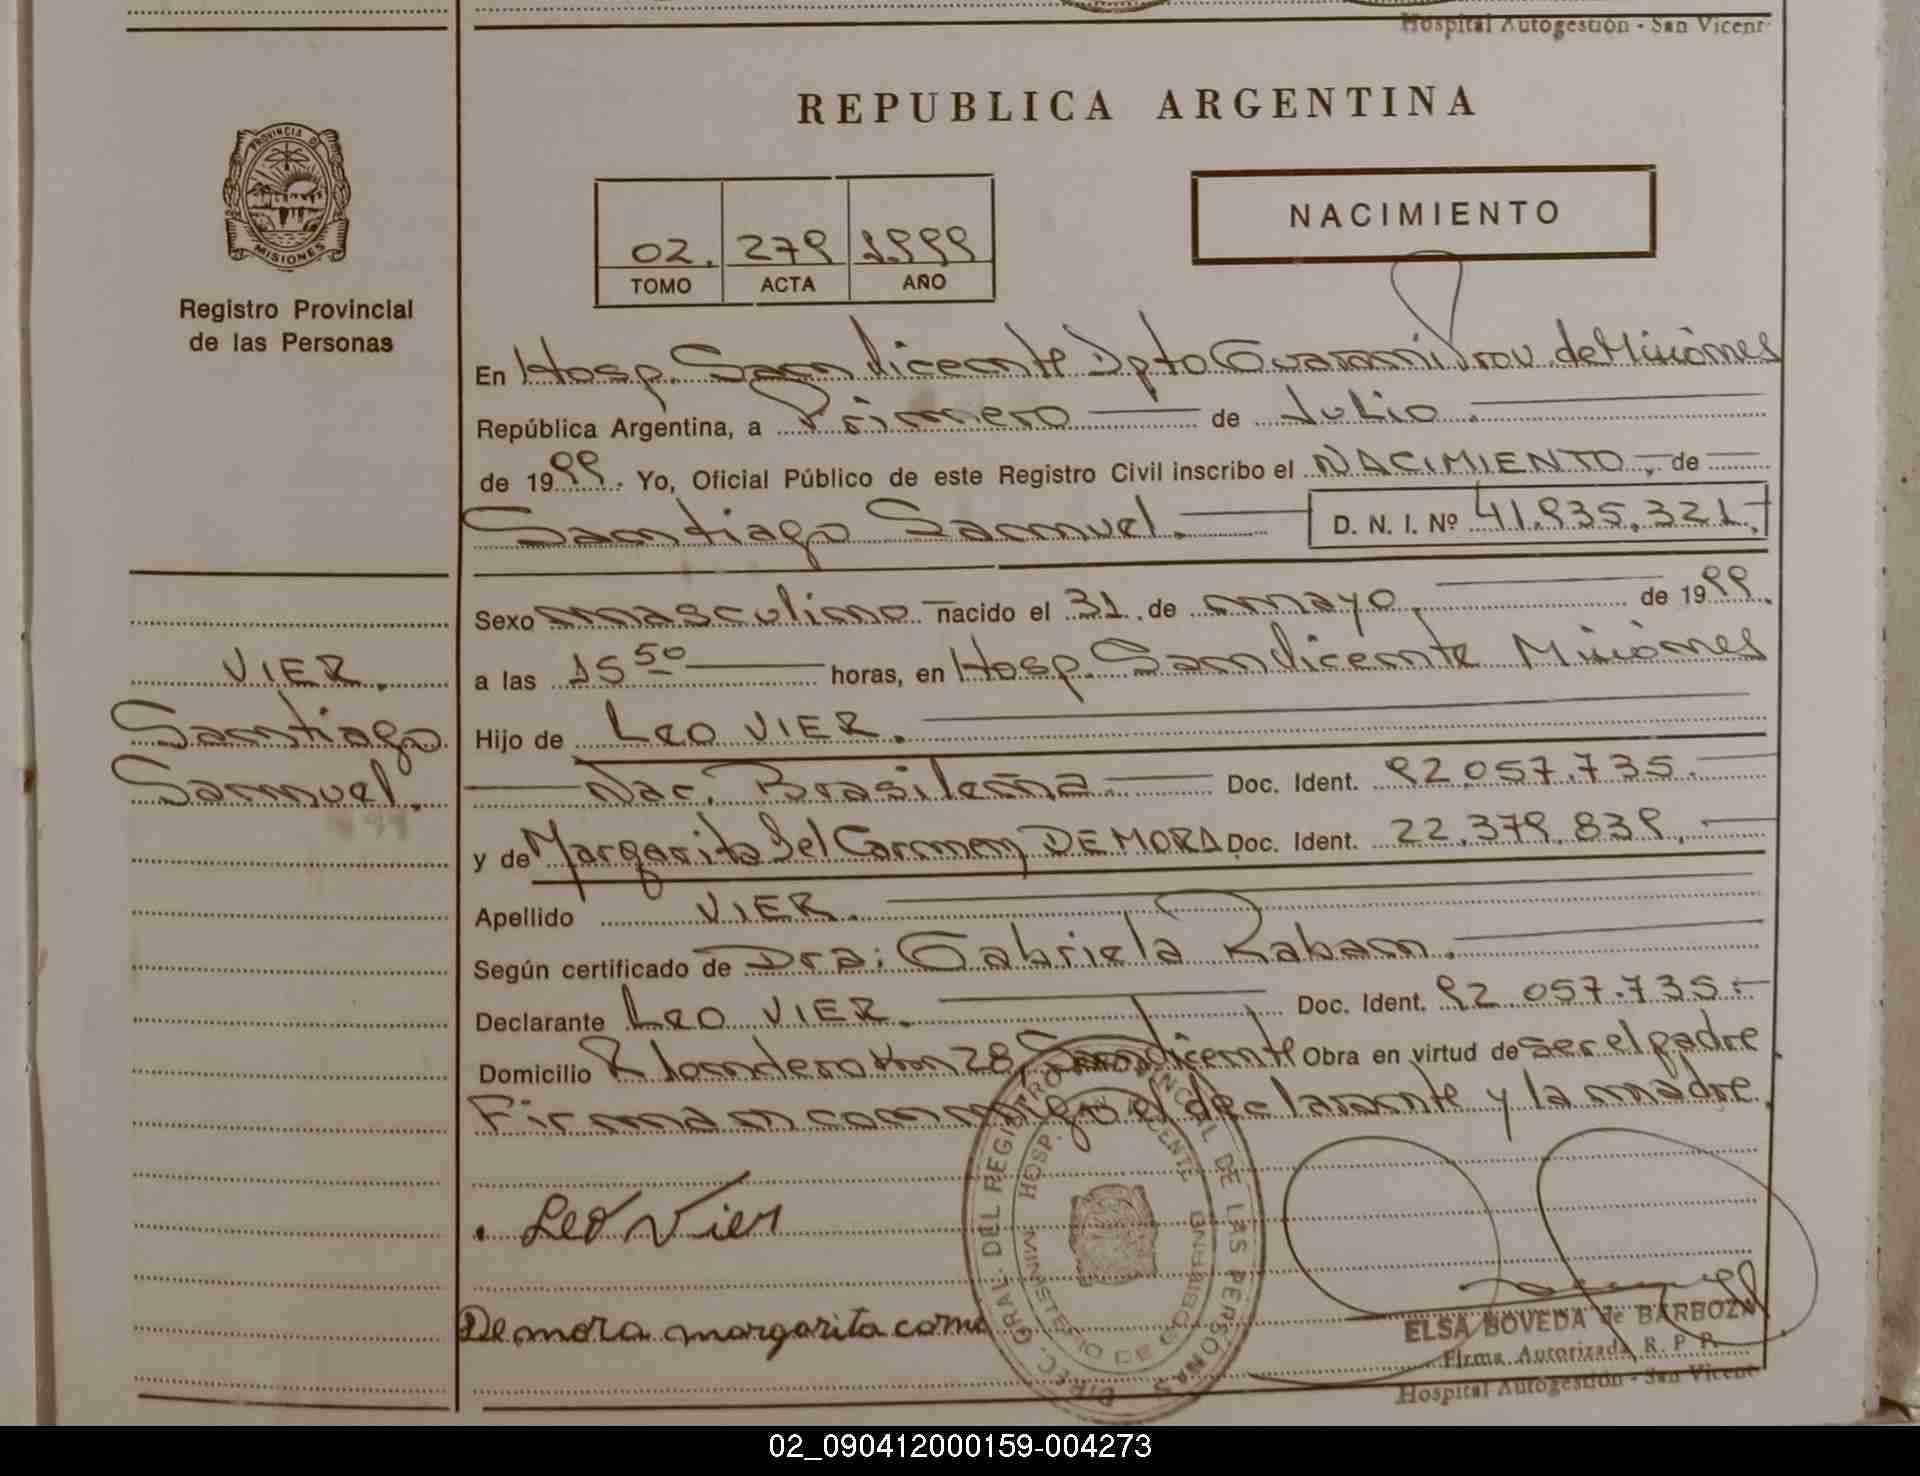 Hospital Autogestión - San Vicent
REPUBLICA ARGENTINA
PROVINCIA D
MISIONES
Registro Provincial
de las Personas
NACIMIENTO
02. 279 1999
TOMO ACTA AÑO
En Hosp. San Vicente Dpto Guaraní Prov. de Misiones
República Argentina, a Primero de Julio.
de 1999. Yo, Oficial Público de este Registro Civil inscribo el NACIMIENTO, de
Santiago Samuel. D. N. I. Nº 41.935.321.
Sexo masculino nacido el 31 de mayo, de 1999.
a las 15 50 horas, en Hosp. San Vicente Misiones
VIER.
Santiago
Samuel.
Hijo de Leo VIER.
Nac. Brasileña Doc. Ident. 92.057.735.
y de Margarita Del Carmen DE MORA Doc. Ident. 22.379.839.
Apellido VIER.
Según certificado de Dra: Gabriela Raban.
Declarante Leo VIER. Doc. Ident. 92.057.735.-
Domicilio R landero Km 28, San Vicente Obra en virtud de ser el padre
Firman conmigo el declarante y la madre.
Leo Vier
De mora margarita carme
DIREC. GRAL. DEL REGISTRO PROVINCIAL DE LAS PERSONAS
HOSP. SAN VICENTE
MINISTERIO DE GOBIERNO
ELSA BOVEDA de BARBOZA
Firma Autorizada R. P. P.
Hospital Autogestión - San Vicent
02_090412000159-004273